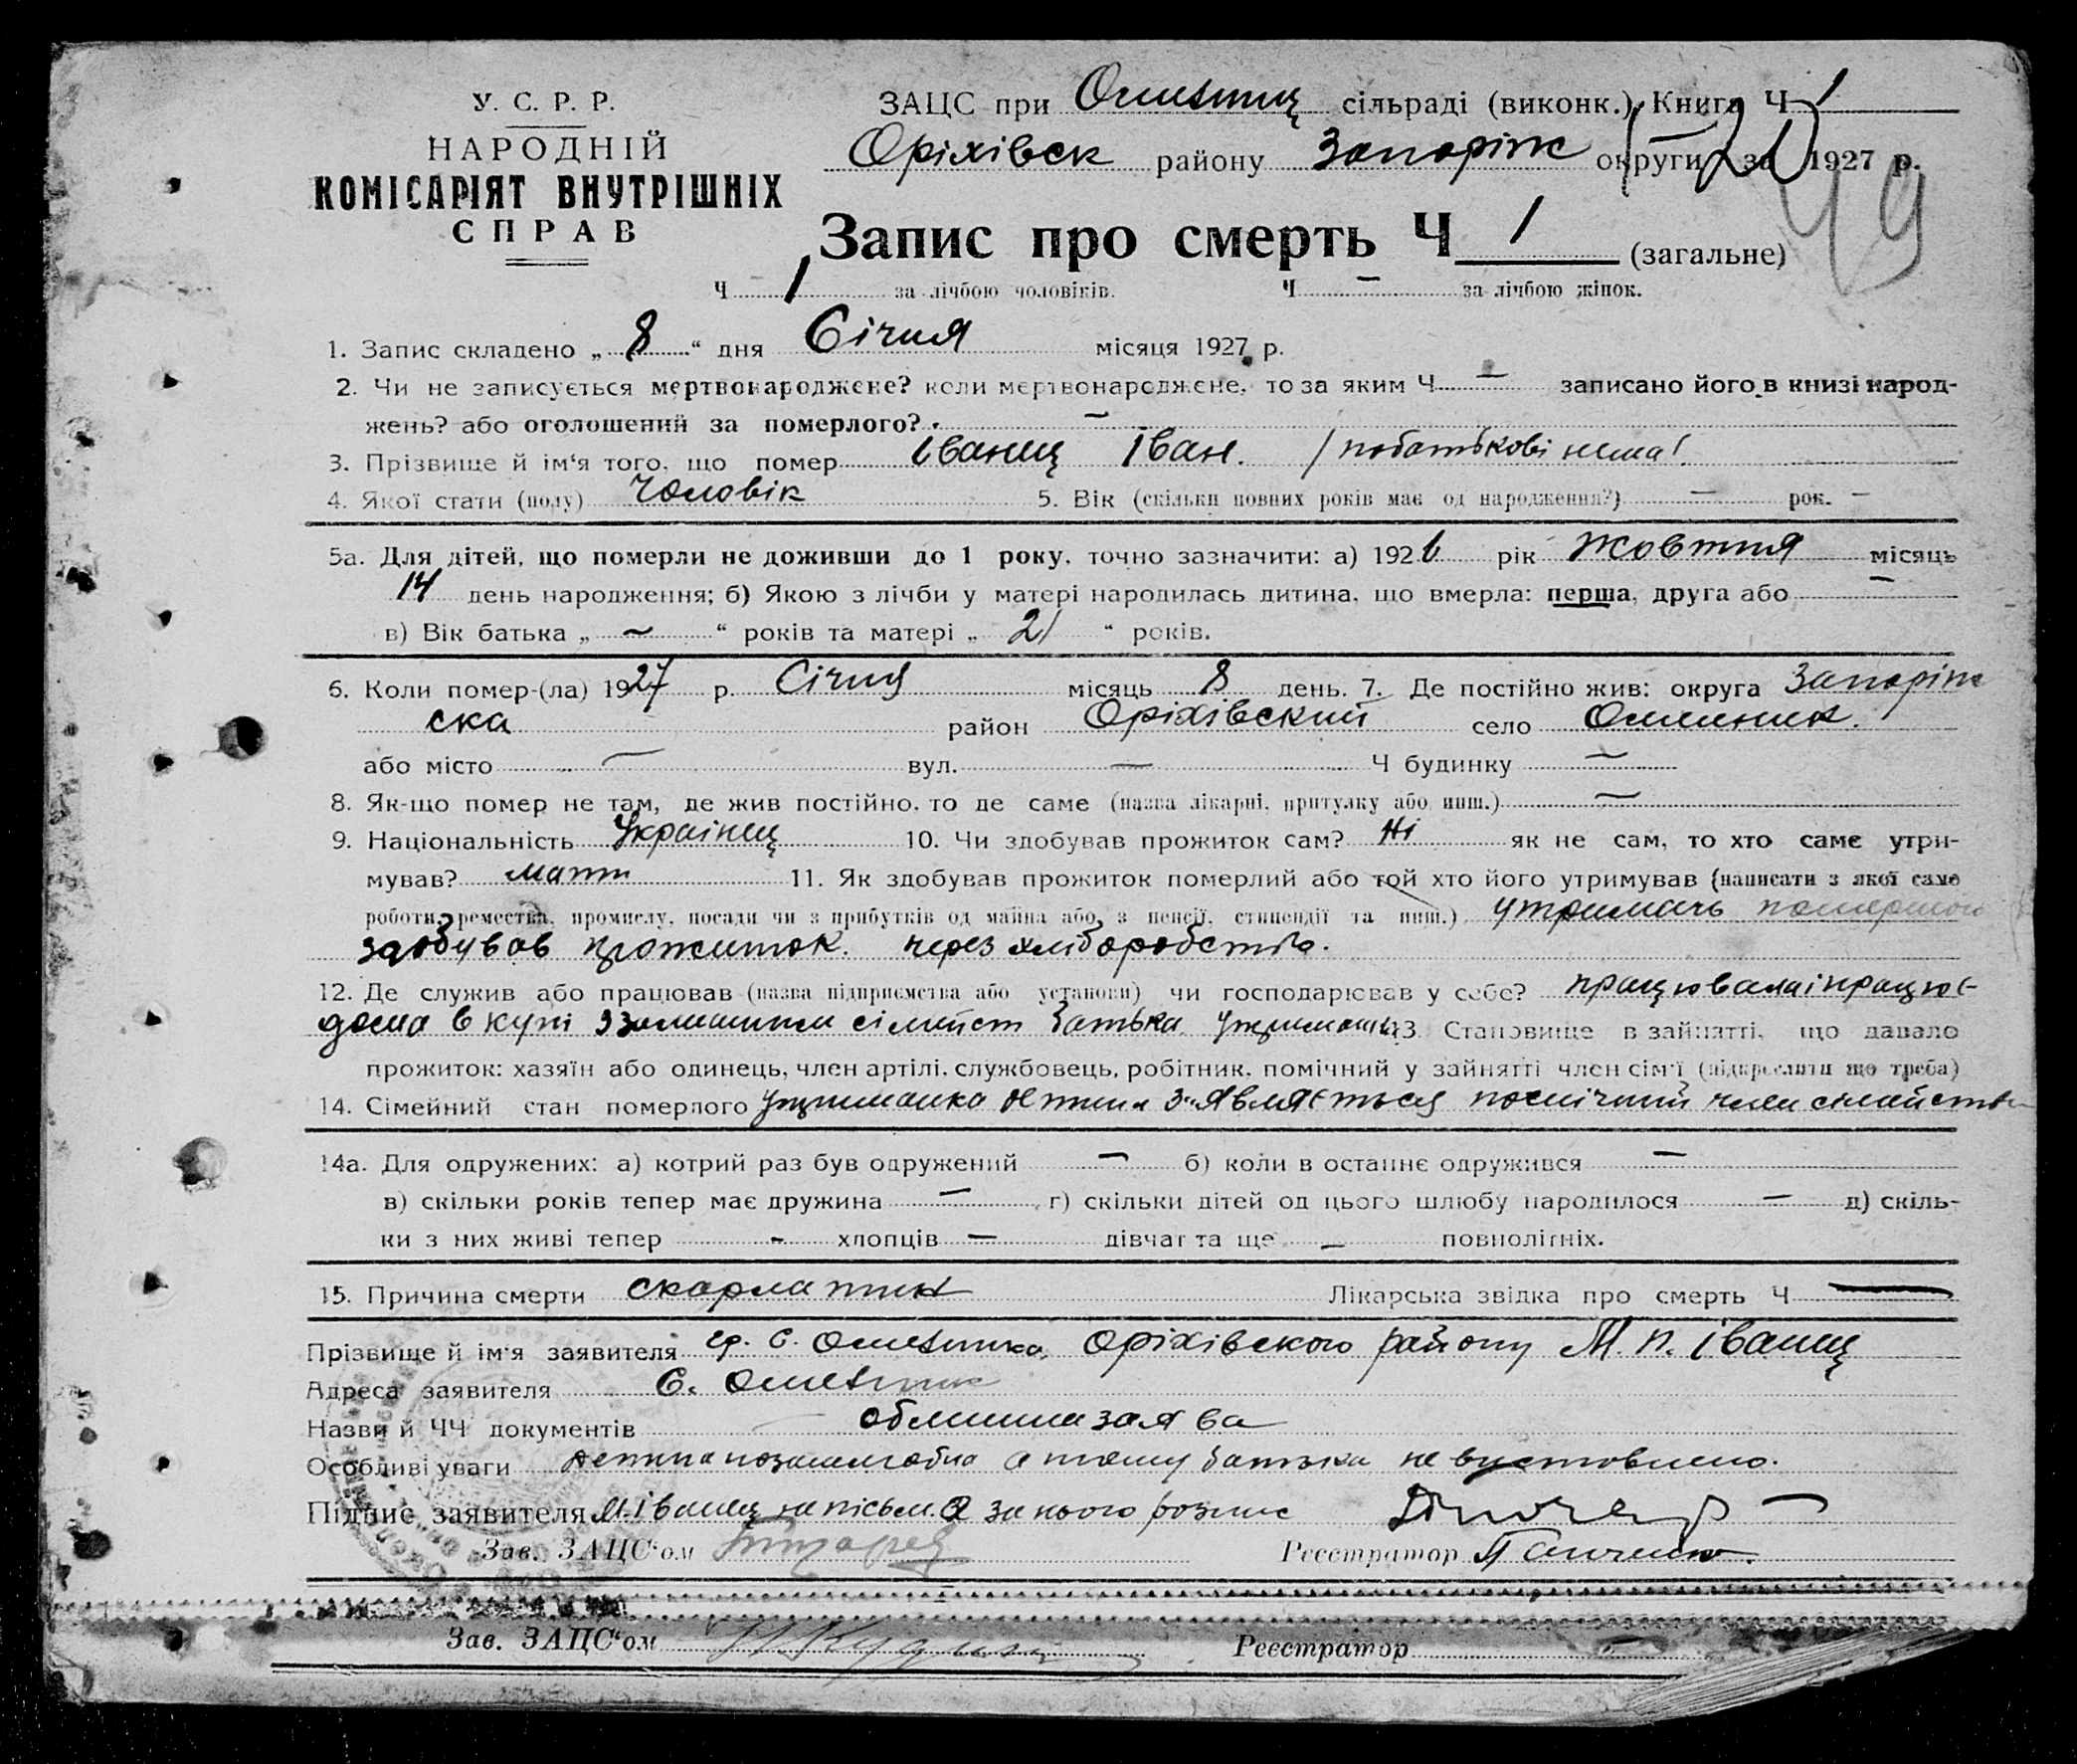 У. С. Р. Р.
НАРОДНІЙ
КОМІСАРІЯТ ВНУТРІШНІХ
СПРАВ
ЗАЦС при сільраді (виконк.) Книга Ч 1
Оріхівск району Запоріж округи за 1927 р.
49
Запис про смерть Ч 1 (загальне)
Ч 1 за лічбою чоловіків. Ч — за лічбою жінок.
1. Запис складено „ 8 “ дня Січня місяця 1927 р.
2. Чи не записується мертвонароджене? коли мертвонароджене, то за яким Ч — записано його в книзі народ-
жень? або оголошений за померлого? —
3. Прізвище й ім‘я того, що помер Іванец Іван. / побатькові нема /
4. Якої стати (полу) Чоловік 5. Вік (скільки повних років має од народження?) — рок. —
5а. Для дітей, що померли не доживши до 1 року, точно зазначити: а) 1926 рік Жовтня місяць
14 день народження; б) Якою з лічби у матері народилась дитина, що вмерла: перша, друга або —
в) Вік батька „ — “ років та матері „ 21 “ років.
6. Коли помер-(ла) 1927 р. Січня місяць 8 день. 7. Де постійно жив: округа Запоріж
ска район Оріхівский село Омельник.
або місто — вул. — Ч будинку —
8. Як-що помер не там, де жив постійно, то де саме (назва лікарні, притулку або инш.) —
9. Національність Українец 10. Чи здобував прожиток сам? Ні як не сам, то хто саме утри-
мував? мати 11. Як здобував прожиток померлий або той хто його утримував (написати з якої саме
роботи, ремества, промислу, посади чи з прибутків од майна або з пенсії, стипендії та инш.) утримачь
здобував прожиток через хліборобство.
12. Де служив або працював (назва підприємства або установи) чи господарював у себе? працювала і працює
дома в купі сімейст батька 13. Становище в зайнятті, що давало
прожиток: хазяїн або одинець, член артілі, службовець, робітник, помічний у зайнятті член сім‘ї (підкреслити що треба)
14. Сімейний стан померлого з‘являється помічний член сімейства
14а. Для одружених: а) котрий раз був одружений — б) коли в останнє одружився —
в) скільки років тепер має дружина — г) скільки дітей од цього шлюбу народилося — д) скіль-
ки з них живі тепер - хлопців — дівчат та ще — повнолітніх.
15. Причина смерти скарлатина Лікарська звідка про смерть Ч —
Прізвище й ім‘я заявителя гр. с. Омельника, Оріхівского району М. П. Іванец
Адреса заявителя С. Омельник
Назви й ЧЧ документів заява
Особливі уваги а тому батька не
Підпис заявителя М. Іванец за нього розпис
Зав. ЗАЦС‘ом Реєстратор
Зав. ЗАЦС‘ом Реєстратор —